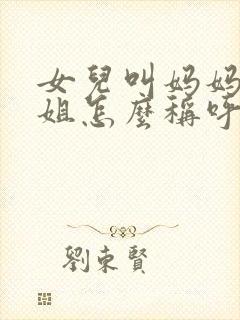 女兒叫妈妈
姐怎麼稱呼
劉東賢